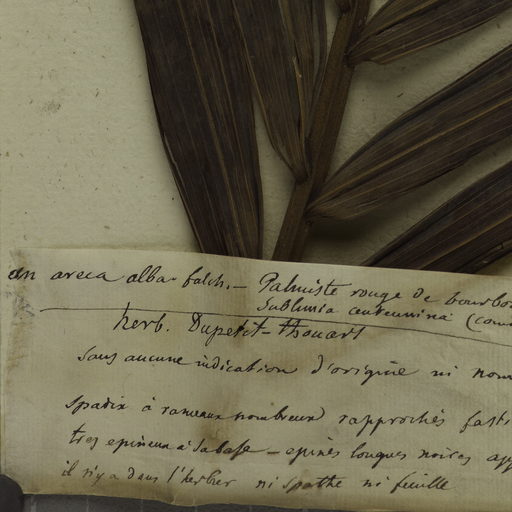 an areca alba? falch. — Palmiste rouge de bourbo
Sublimia centennina (com
herb. Dupetit-thouars
Sans aucune indication d'origine ni nom
Spadix à rameaux nombreux rapprochés fasti
tres epineux à sa base — epines longues noires app
il n'y a dans l'herbier ni spathe ni feuille